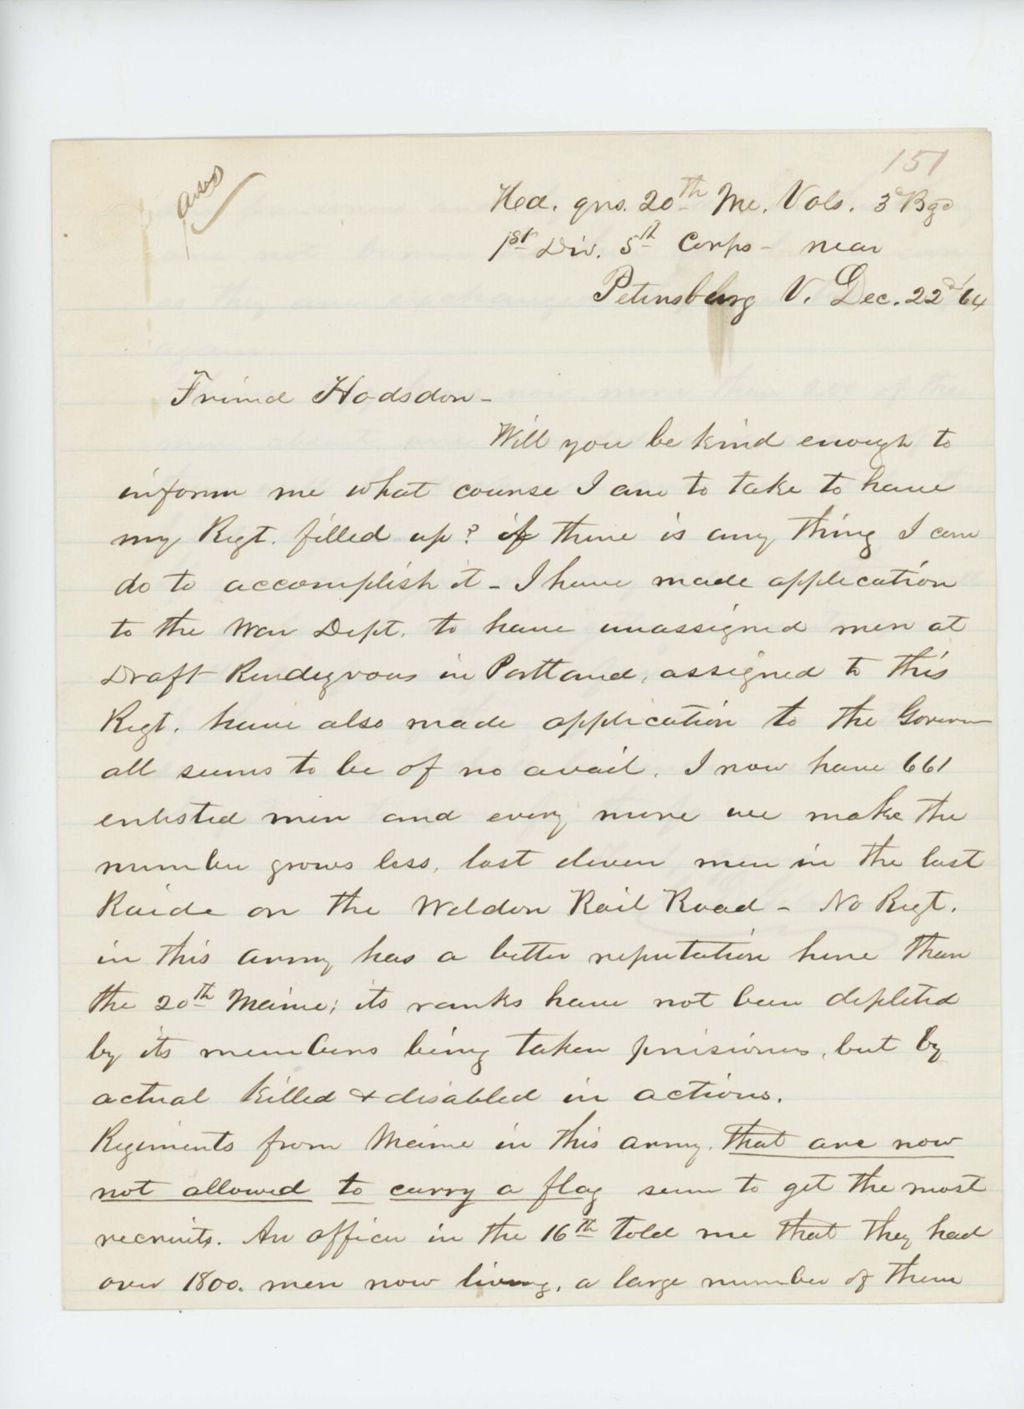 151
ansd
Hed. qrs. 20th Me. Vols. 3d Bgd
1st Div. 5th Corps - near
Petersburg V. Dec. 22d /64
Friend Hodsdon -
Will you be kind enough to
inform me what course I am to take to have
my Regt. filled up? if there is any thing I can
do to accomplish it - I have made application
to the War Dept. to have unassigned men at
Draft Rendezvous in Portland, assigned to this
Regt. have also made application to the Govern
all seems to be of no avail. I now have 661
enlisted men and every move we make the
number grows less, lost eleven men in the last
Raide on the Weldon Rail Road - No Regt.
in this army has a better reputation here than
the 20th Maine; its ranks have not been depleted
by its members being taken prisioners, but by
actual killed & disabled in actions.
Regiments from Maine in this army, that are now
not allowed to carry a flag seem to get the most
recruits. An officer in the 16th told me that they had
over 1800. men now living, a large number of them